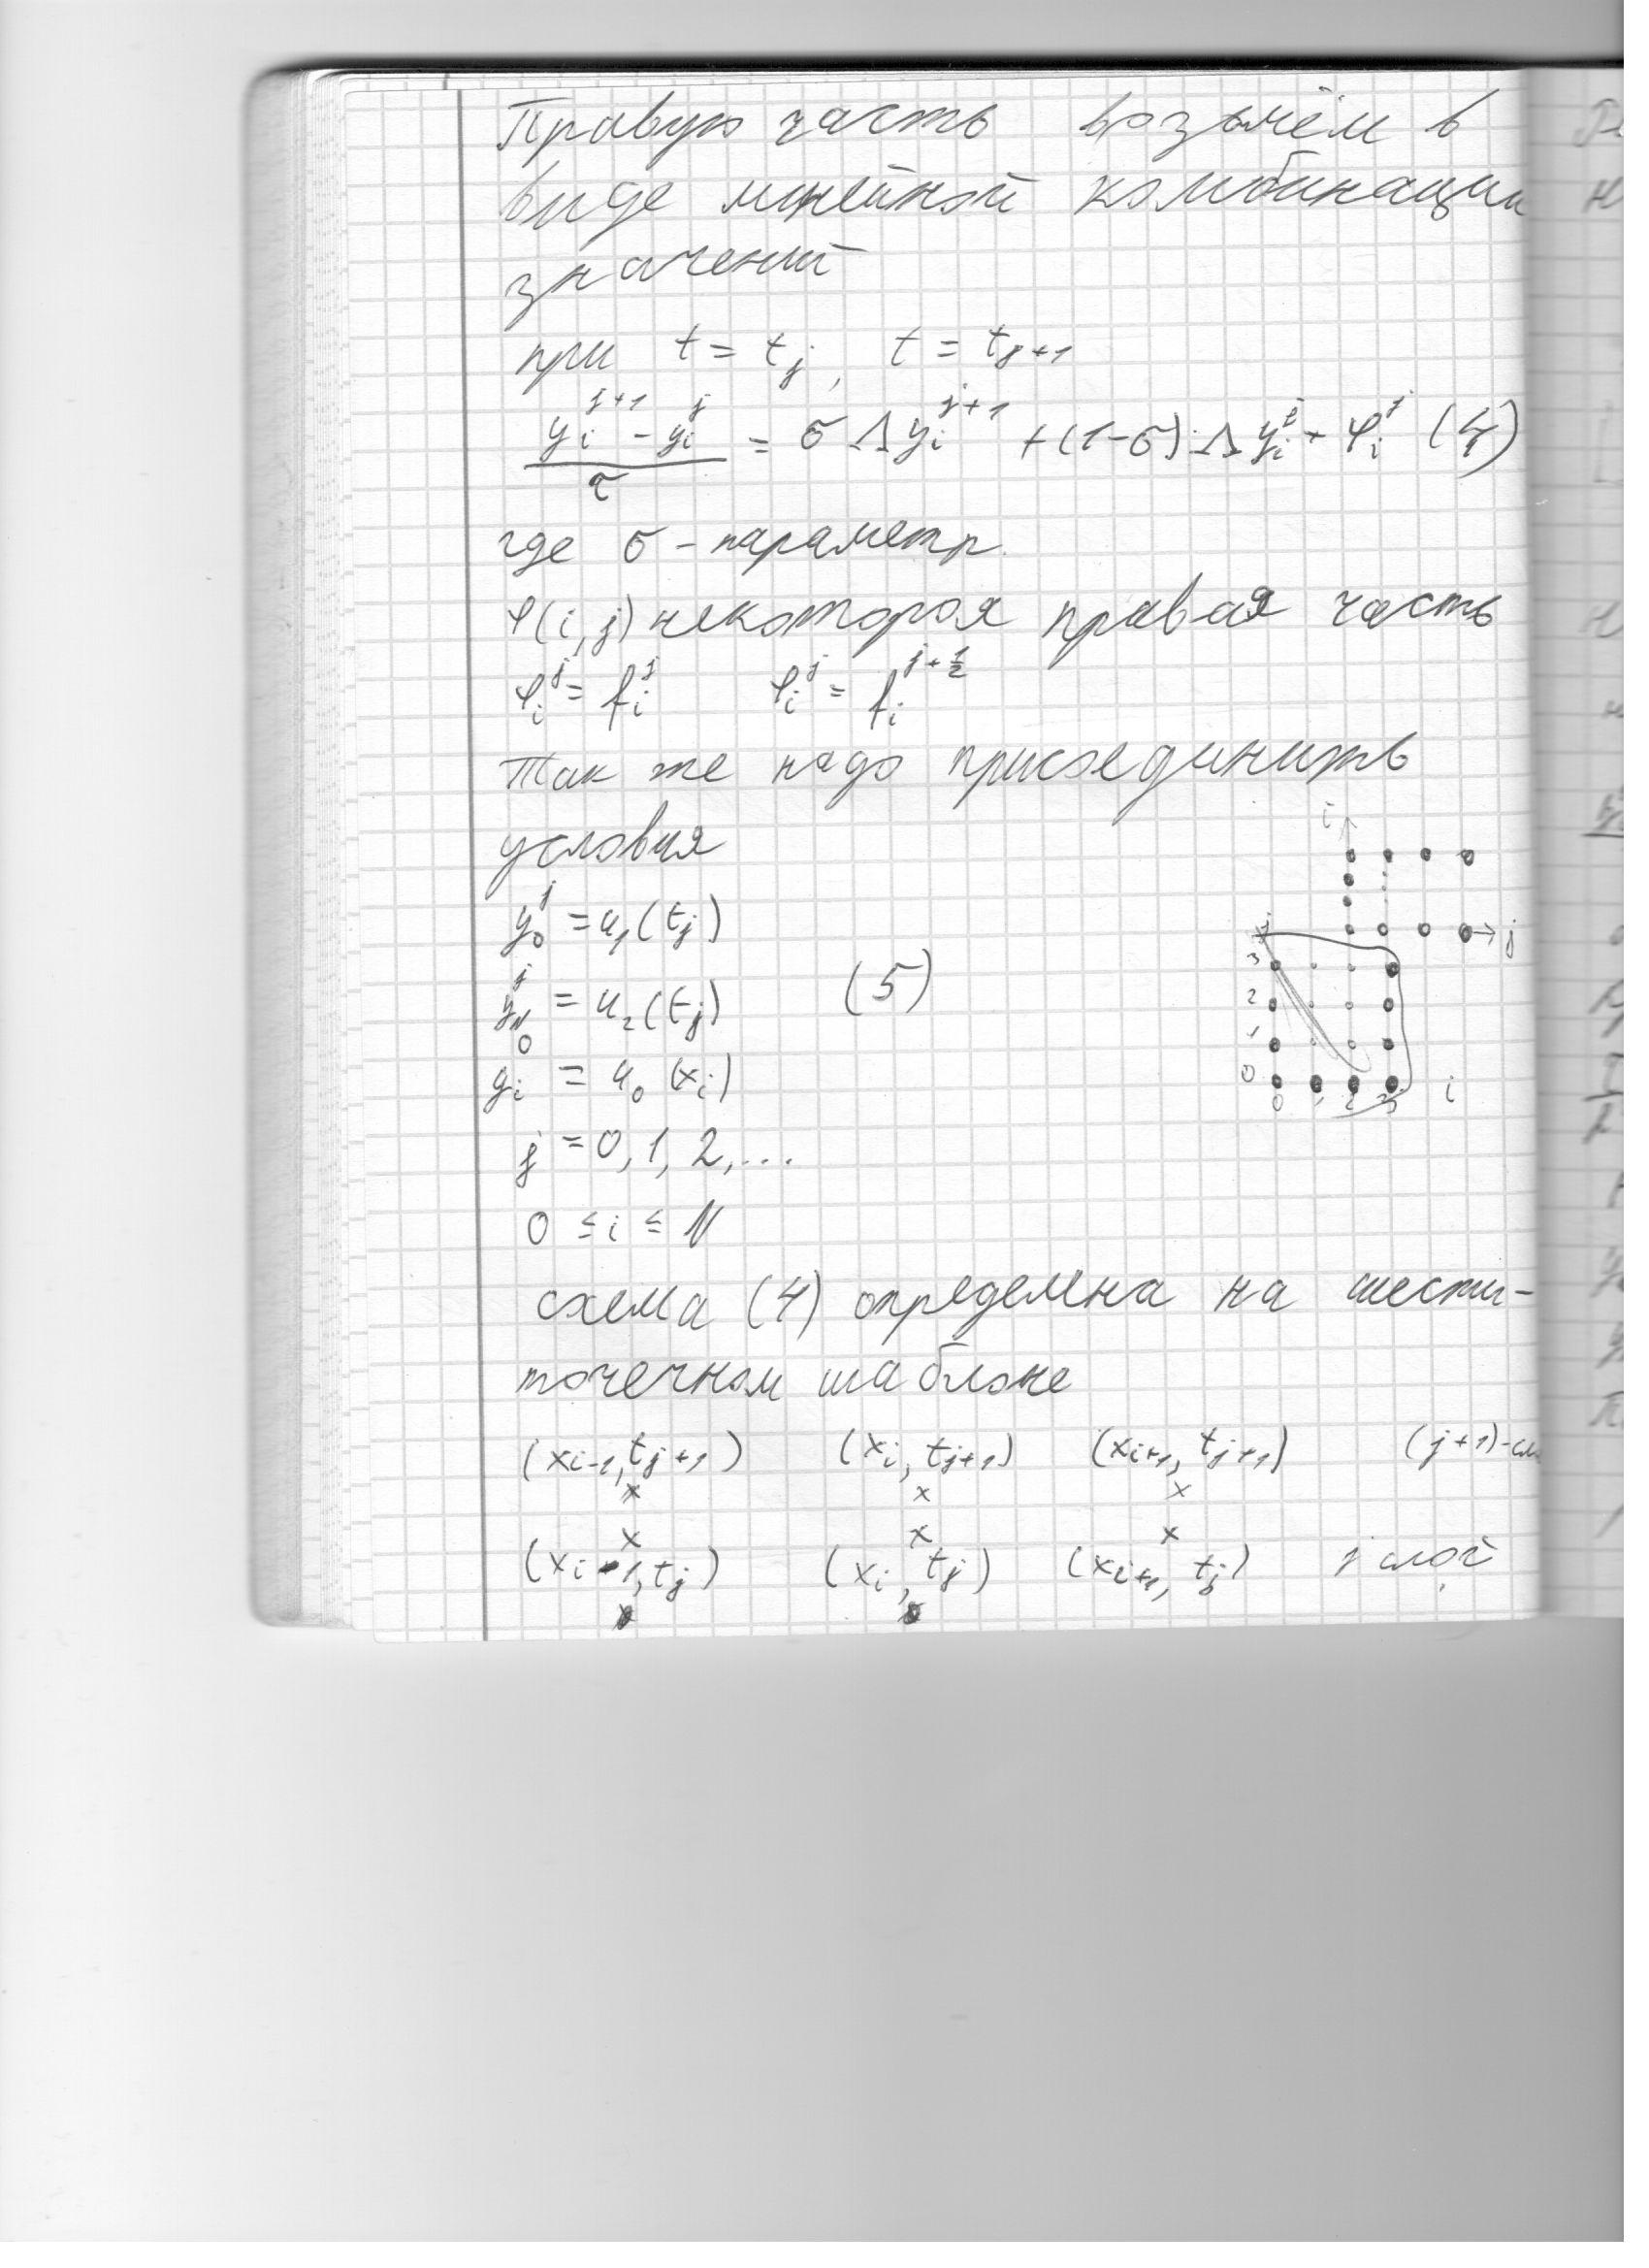 Правую часть возьмём в
виде линейной комбинации
значений
при t = t_j, t = t_{j+1}
(y_i^{j+1} - y_i^j)/τ = σ Λ y_i^{j+1} + (1-σ) Λ y_i^j + φ_i^j (4)
где σ - параметр.
φ(i, j) некоторая правая часть
φ_i^j = f_i^j φ_i^j = f_i^{j+1/2}
Так же надо присоединить
условия
y_0^j = u_1(t_j)
y_N^j = u_2(t_j) (5)
y_i^0 = u_0(x_i)
j = 0, 1, 2, ...
0 ≤ i ≤ N
i
j
3
2
1
0
0 1 2 3 i
схема (4) определена на шести-
точечном шаблоне
(x_{i-1}, t_{j+1}) (x_i, t_{j+1}) (x_{i+1}, t_{j+1}) (j+1)-сло
x x x
x x x
(x_{i-1}, t_j) (x_i, t_j) (x_{i+1}, t_j) j слой